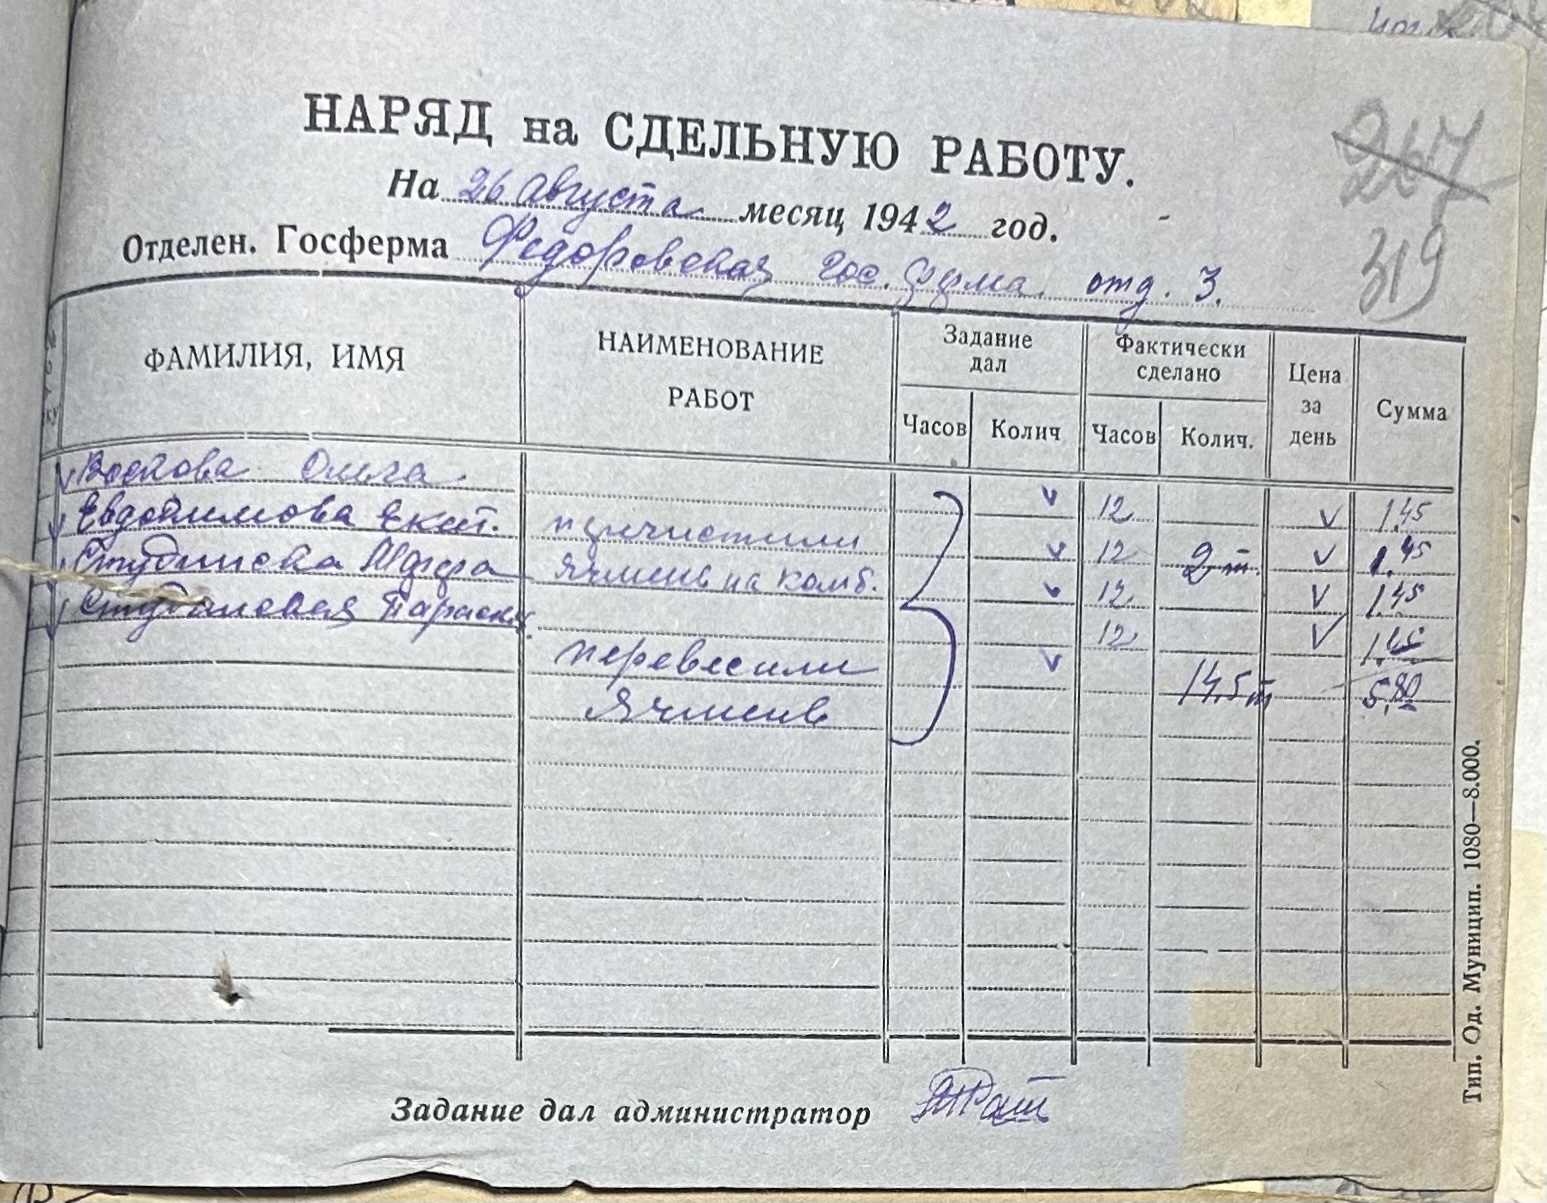 267
319
НАРЯД на СДЕЛЬНУЮ РАБОТУ.
На 26 Августа месяц 1942 год.
Отделен. Госферма Федоровская гос. ферма отд. 3.
ФАМИЛИЯ, ИМЯ
НАИМЕНОВАНИЕ РАБОТ
Задание дал
Фактически сделано
Цена за день
Сумма
Часов Колич Часов Колич.
Ольга v 12 v 1.45
Евдокимова Екат. причистили v 12 2 т. v 1.45
Ячмень на комб. v 12 v 1.45
12 v 1.45
перевесили v 14,5 т 5,80
Ячмень
Задание дал администратор
Тип. Од. Муницип. 1080—8.000.